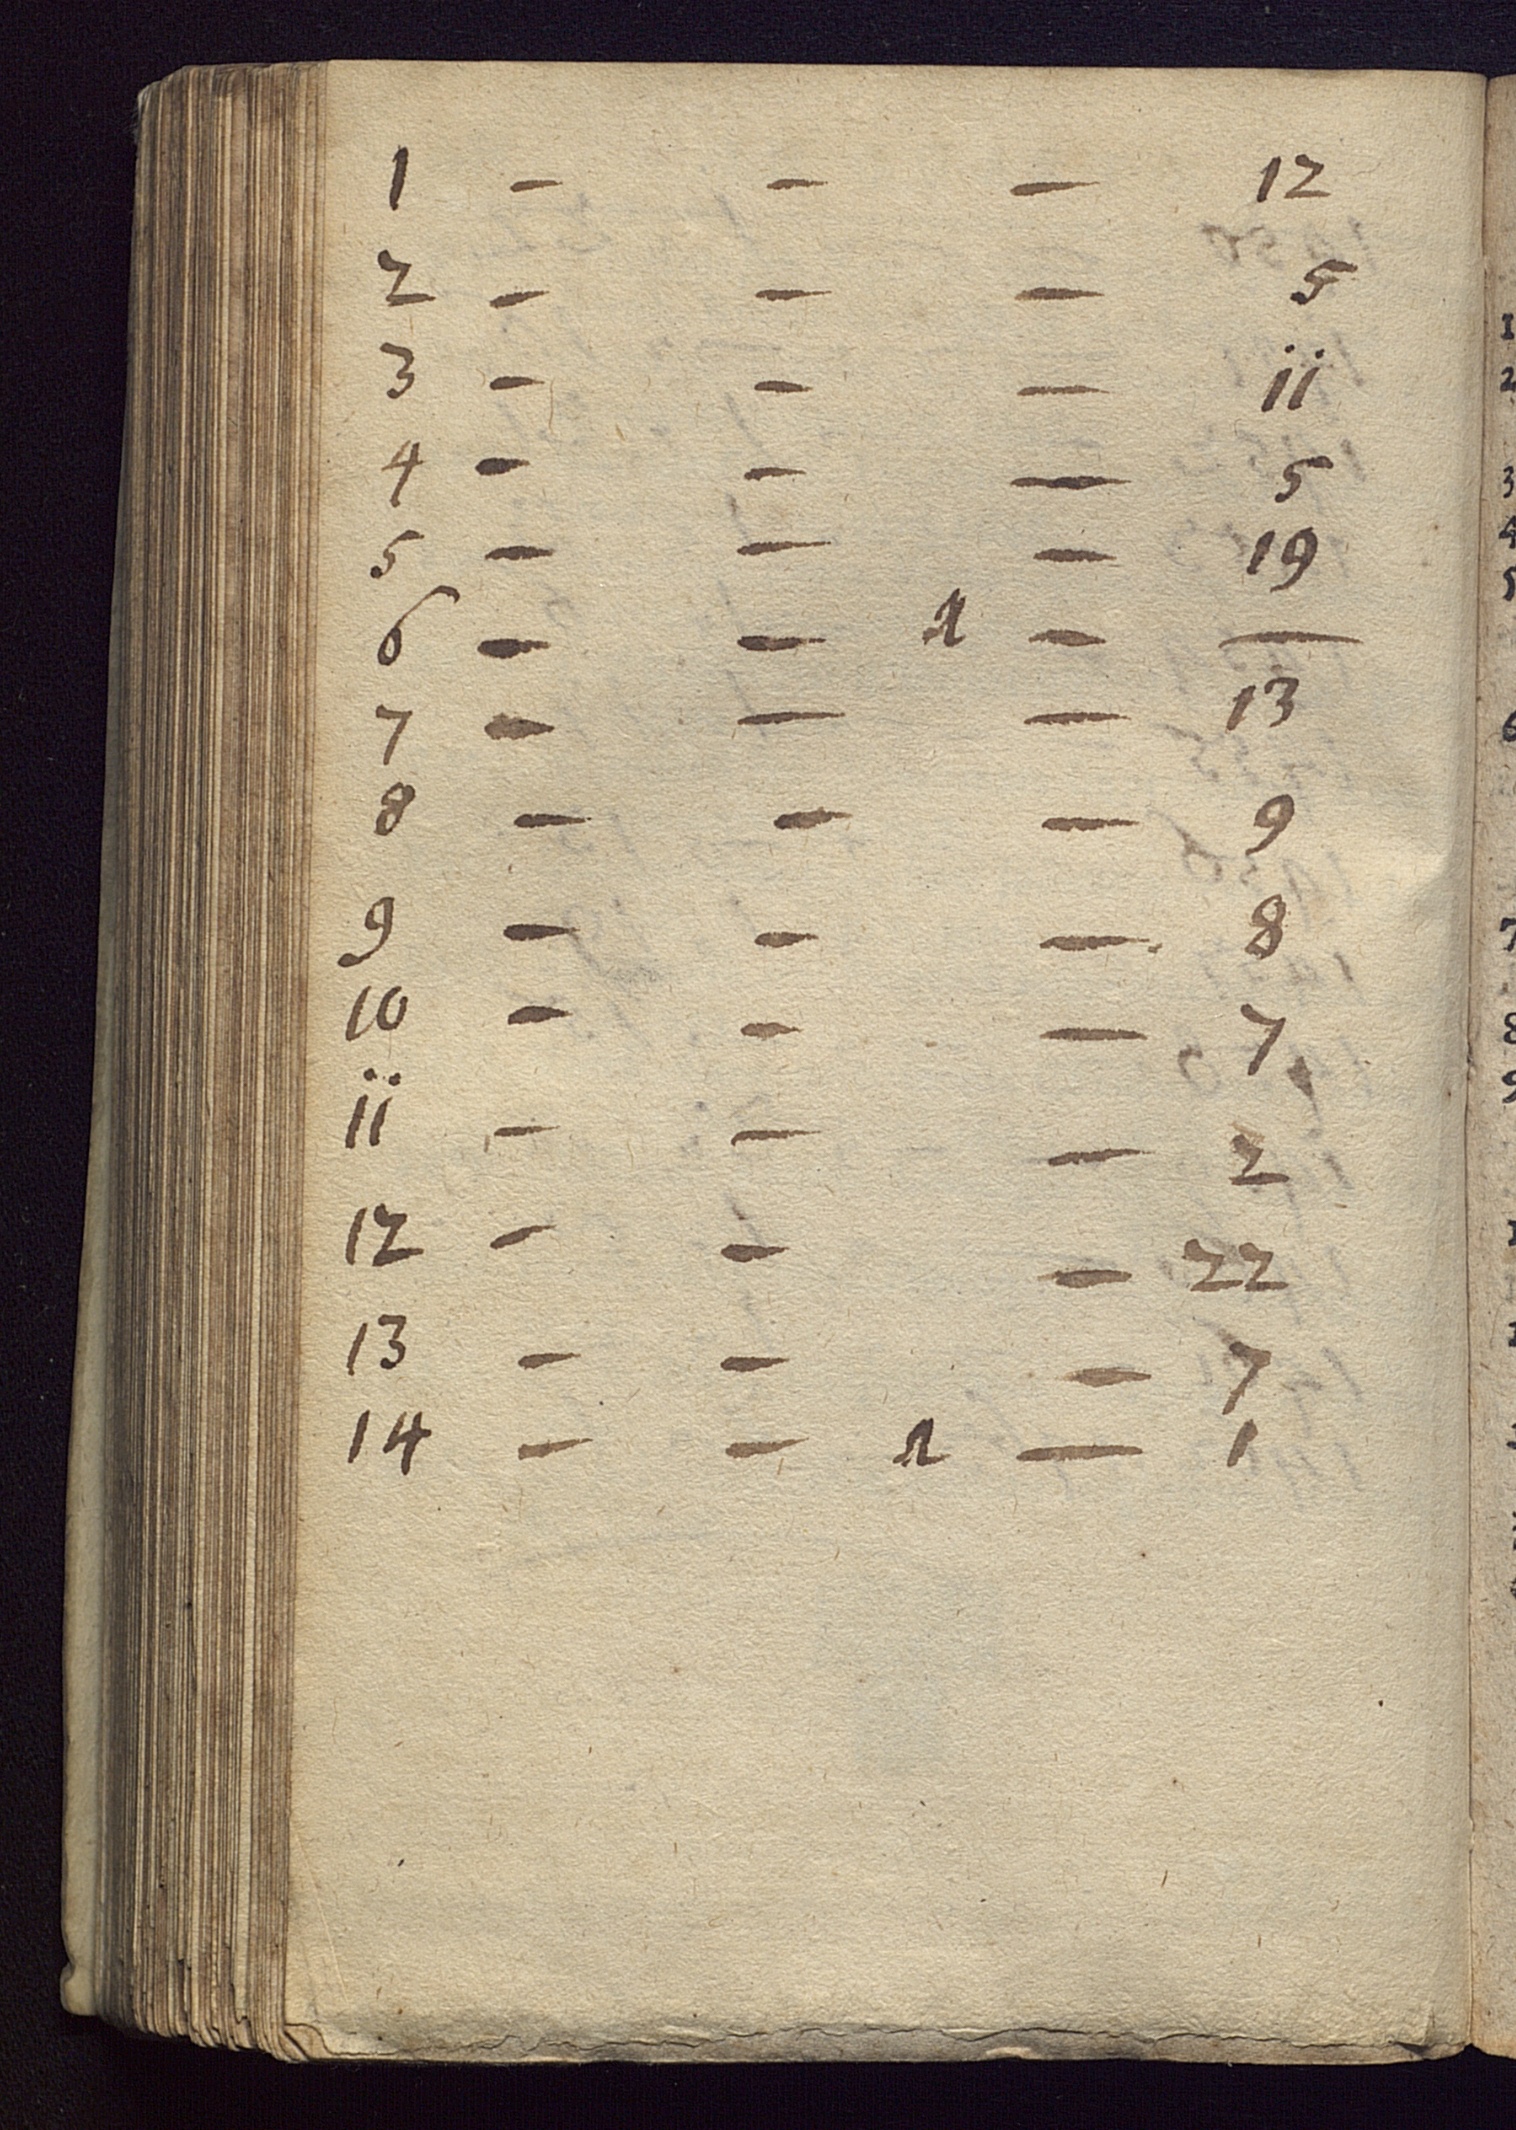 1 - - - 12
2 - - - 5
3 - - - ii
4 - - - 5
5 - - - 19
6 - - 1 - —
7 - - - 13
8 - - - 9
9 - - - 8
10 - - - 7
ii - - - 2
12 - - - 22
13 - - - 7
14 - - 1 - 1